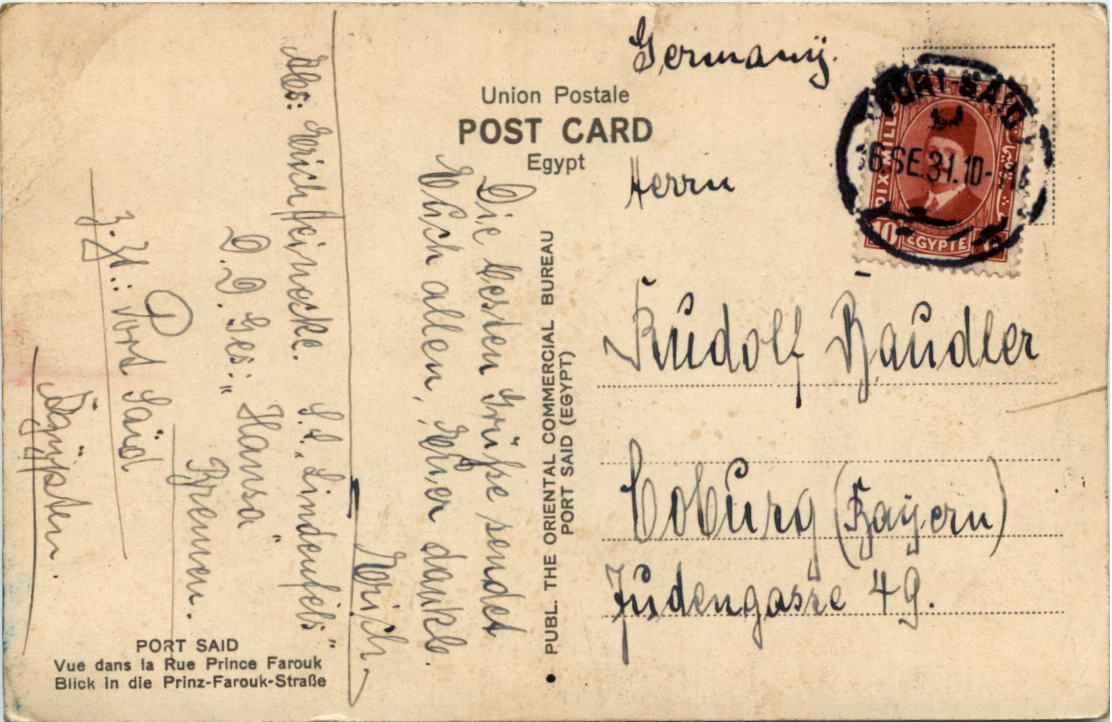 Germany.
Union Postale
POST CARD
Egypt
PORT-SAID
6 SE.31.10-
DIX MILL
10 EGYPTE
Herrn
Rudolf Baudler
Coburg (Bayern)
Judengasse 49.
Die besten Grüße sendet
Euch allen, Euer
Erich.
Abs: Erich Heinecke. S.S. „Lindenfels"
D.D. Ges: „Hansa"
Bremen.
z. Zt.: Port Said
Ägypten.
• PUBL. THE ORIENTAL COMMERCIAL BUREAU
PORT SAID (EGYPT)
PORT SAID
Vue dans la Rue Prince Farouk
Blick in die Prinz-Farouk-Straße